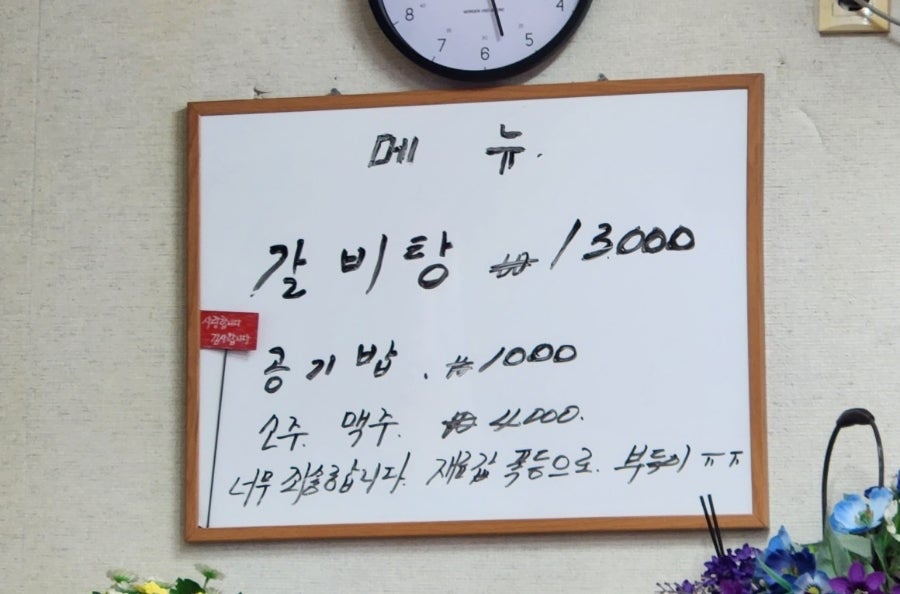 8 7 6 5 4
메 뉴.
갈비탕 ₩13000
사랑합니다
감사합니다
공기밥. ₩1000
소주. 맥주. ₩4000.
너무 죄송합니다. 재료값 폭등으로. 부득이 ㅠㅠ